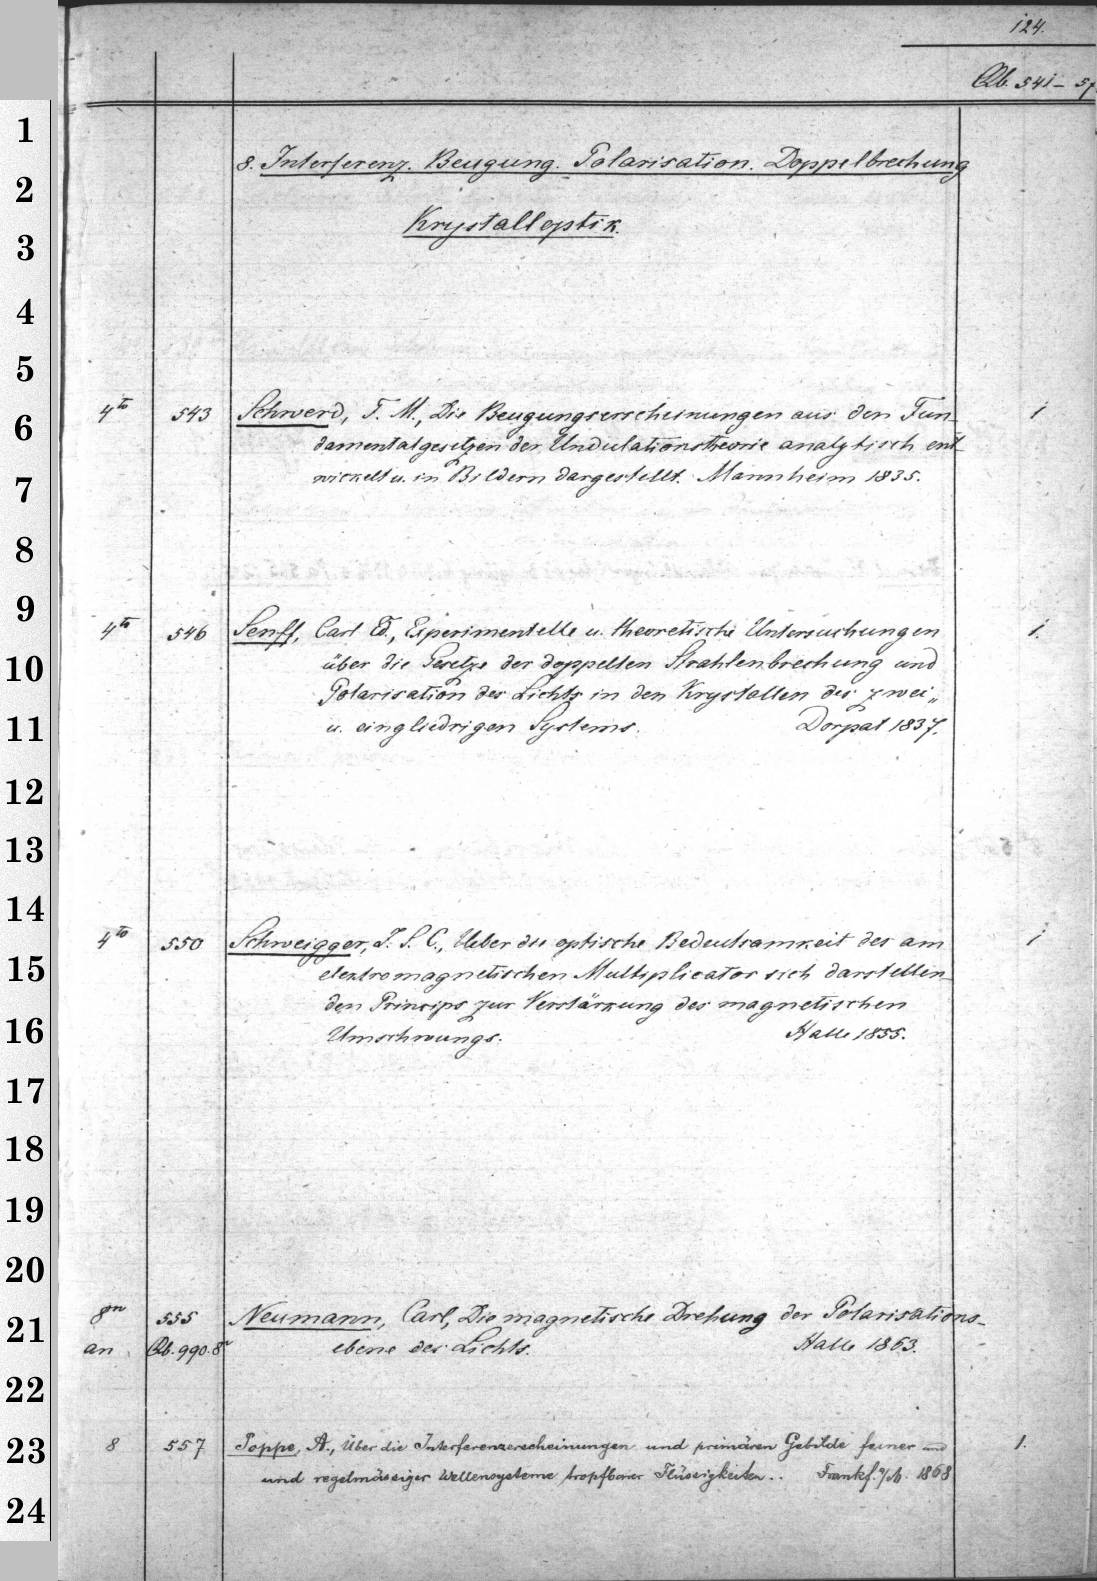 124.
Qb. 541–57
1
2
3
4
5
6
7
8
9
10
11
12
13
14
15
16
17
18
19
20
21
22
23
24
8. Interferenz. Beugung. Polarisation. Doppelbrechung
Krystalloptik.
4to 543 Schwerd, F. M., Die Beugungserscheinungen aus den Fun- 1
damentalgesetzen der Undulationstheorie analytisch ent-
wickelt u. in Bildern dargestellt. Mannheim 1835.
4to 546 Senff, Carl Ed., Experimentelle u. theoretische Untersuchungen 1.
über die Gesetze der doppelten Strahlenbrechung und
Polarisation des Lichts in den Krystallen des zwei„
u. eingliedrigen Systems. Dorpat 1837.
4to 550 Schweigger, J. S. C., Ueber die optische Bedeutsamkeit des am 1
elektromagnetischen Multiplicator sich darstellen-
den Princips zur Verstärkung des magnetischen
Umschwungs. Halle 1855.
8vn 555 Neumann, Carl, Die magnetische Drehung der Polarisations-
an Qb. 990.8v ebene des Lichts. Halle 1863.
8 557 Poppe, A., Über die Interferenzerscheinungen und primären Gebilde feiner und 1.
und regelmässiger Wellensysteme tropfbarer Flüssigkeiten.. Frankf. a/M. 1868